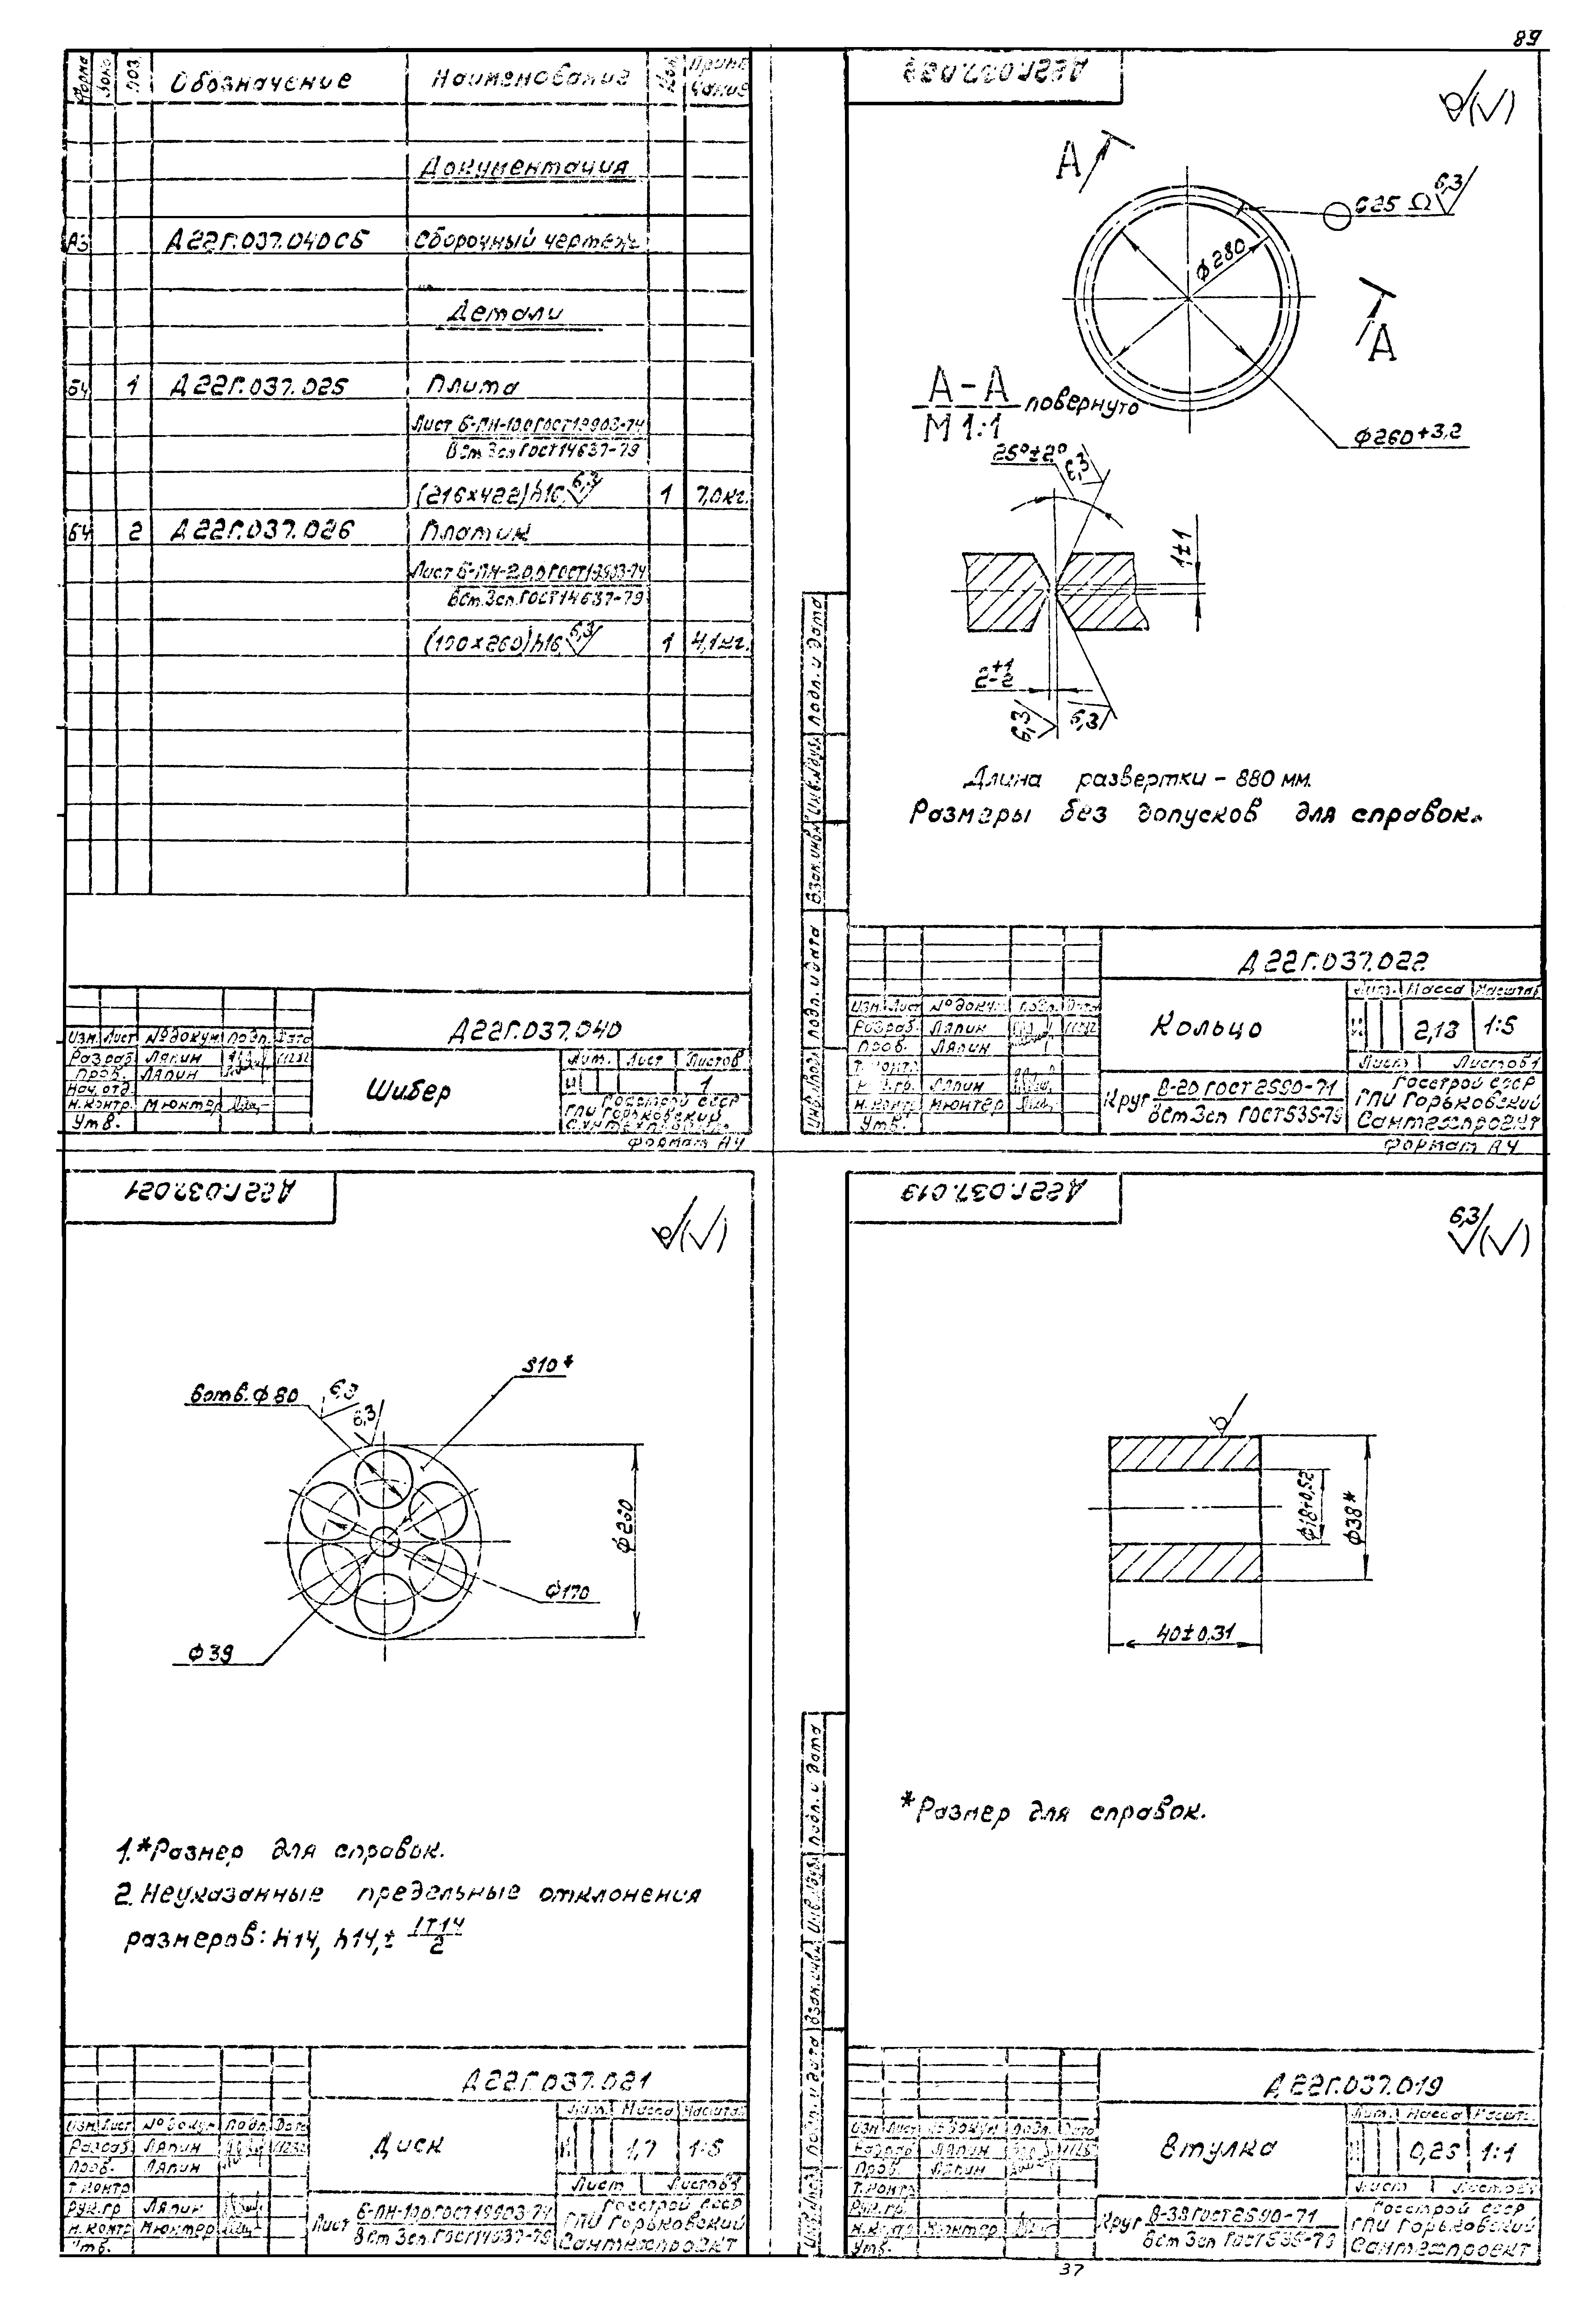 89
Форма Зона Поз. Обозначение Наименование Кол. Приме чание
Документация
А3 Д22Г.037.040СБ Сборочный чертеж
Детали
Б4 1 Д22Г.037.025 Плита
Лист Б-ПН-10,0 ГОСТ 19903-74
ВСт.3сп ГОСТ 14637-79
(216×422)h16, 6,3 1 7,0кг.
Б4 2 Д22Г.037.026 Платик
Лист Б-ПН-20,0 ГОСТ 19903-74
ВСт.3сп. ГОСТ 14637-79
(100×260)h16, 6,3 1 4,1кг.
Д22Г.037.040
Изм. Лист № докум. Подп. Дата
Разраб. Ляпин
Пров. Ляпин
Нач. отд.
Н. контр. Мюнтер
Утв.
Шибер
Лит. Лист Листов
И 1
Госстрой СССР
ГПИ Горьковский
Сантехпроект
Формат А4
Д22Г.037.022
А
А
6,3
ϕ280
ϕ260+3,2
А-А повернуто
М 1:1
25°±2°
6,3
1±1
2+1-2
6,3
6,3
Длина развертки - 880 мм.
Размеры без допусков для справок.
Инв.№подл. Подп. и дата Взам.инв.№ Инв.№дубл. Подп. и дата
Д22Г.037.022
Изм. Лист № докум. Подп. Дата
Разраб. Ляпин
Пров. Ляпин
Т. контр.
Рук. гр. Ляпин
Н. контр. Мюнтер
Утв.
Кольцо
Лит. Масса Масштаб
И 2,13 1:5
Лист Листов 1
Круг В-20 ГОСТ 2590-71
ВСт3сп ГОСТ 535-79
Госстрой СССР
ГПИ Горьковский
Сантехпроект
Формат А4
Д22Г.037.021
S10*
6отв.ϕ80
6,3
6,3
ϕ260
ϕ170
ϕ39
1.*Размер для справок.
2. Неуказанные предельные отклонения
размеров: H14, h14, ± IT14/2
Д22Г.037.021
Изм. Лист № докум. Подп. Дата
Разраб. Ляпин
Пров. Ляпин
Т. контр.
Рук. гр. Ляпин
Н. контр. Мюнтер
Утв.
Диск
Лит. Масса Масштаб
И 1,7 1:5
Лист Листов 1
Лист Б-ПН-10,0 ГОСТ 19903-74
ВСт 3сп ГОСТ 14637-79
Госстрой СССР
ГПИ Горьковский
Сантехпроект
Д22Г.037.019
6,3
ϕ18+0,52
ϕ38*
40±0,31
*Размер для справок.
Инв.№подл. Подп. и дата Взам.инв.№ Инв.№дубл. Подп. и дата
Д22Г.037.019
Изм. Лист № докум. Подп. Дата
Разраб. Ляпин
Пров. Ляпин
Т. контр.
Рук. гр.
Н. контр. Мюнтер
Утв.
Втулка
Лит. Масса Масштаб
0,25 1:1
Лист Листов 1
Круг В-38 ГОСТ 2590-71
ВСт 3сп ГОСТ 535-79
Госстрой СССР
ГПИ Горьковский
Сантехпроект
37